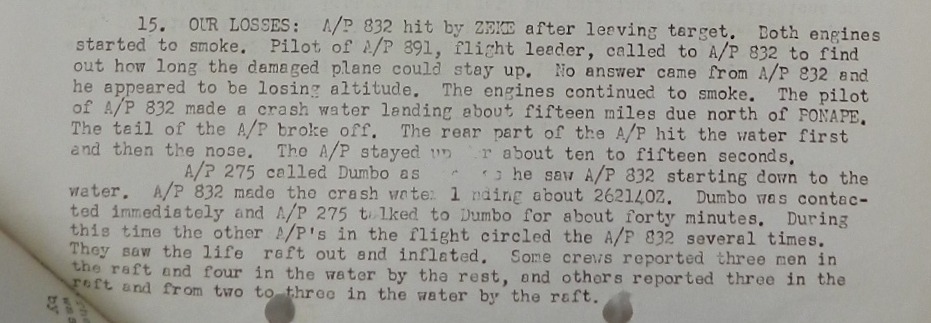 15. OUR LOSSES: A/P 832 hit by ZEKE after leaving target. Both engines
started to smoke. Pilot of A/P 891, flight leader, called to A/P 832 to find
out how long the damaged plane could stay up. No answer came from A/P 832 and
he appeared to be losing altitude. The engines continued to smoke. The pilot
of A/P 832 made a crash water landing about fifteen miles due north of PONAPE.
The tail of the A/P broke off. The rear part of the A/P hit the water first
and then the nose. The A/P stayed about ten to fifteen seconds.
A/P 275 called Dumbo as he saw A/P 832 starting down to the
water. A/P 832 made the crash water landing about 262140Z. Dumbo was contac-
ted immediately and A/P 275 talked to Dumbo for about forty minutes. During
this time the other A/P's in the flight circled the A/P 832 several times.
They saw the life raft out and inflated. Some crews reported three men in
the raft and four in the water by the rest, and others reported three in the
raft and from two to three in the water by the raft.